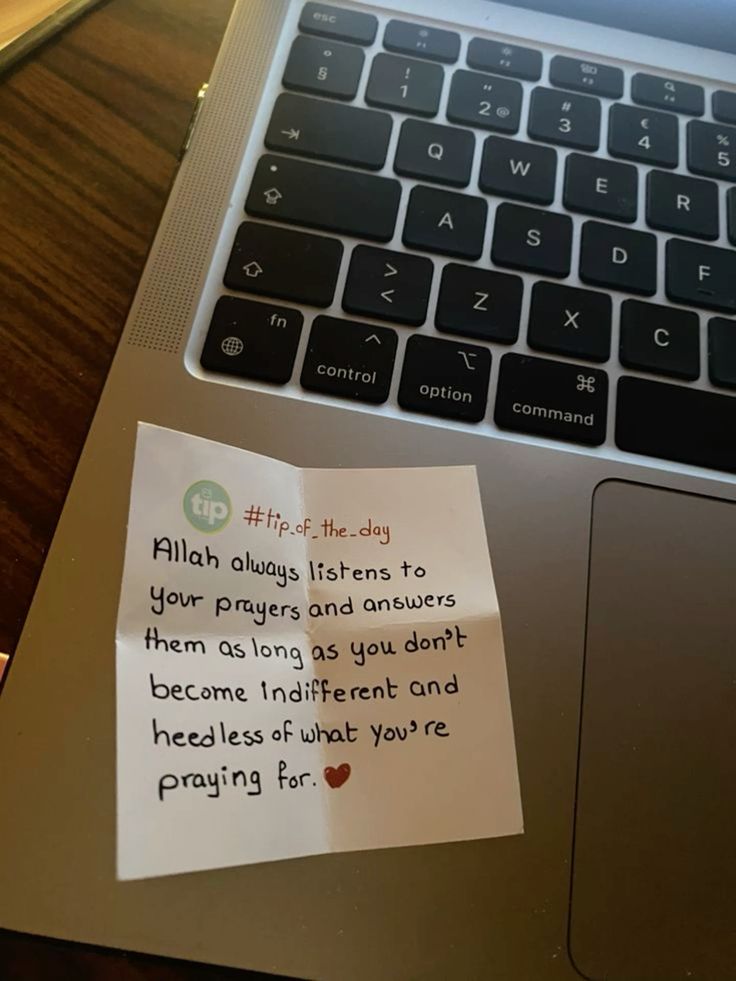 esc F1 F2 F3 F4
° § ! 1 " 2 @ # 3 € 4 % 5
Q W E R
A S D F
> < Z X C
fn control option command
tip #tip_of_the_day
Allah always listens to
your prayers and answers
them as long as you don't
become indifferent and
heedless of what you're
praying for.